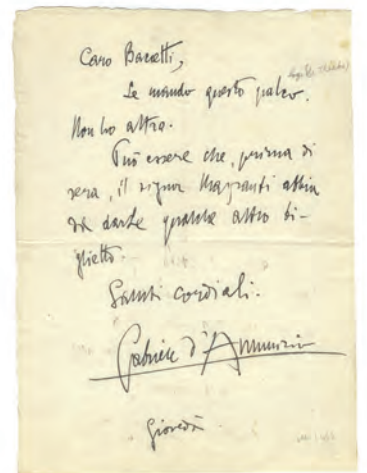 Caro
Le mando questo palco.
Non ho altro.
Può essere che, prima di
sera, il signor abbia
da darle qualche altro bi-
glietto.
Saluti cordiali.
Gabriele d'Annunzio
Giovedì